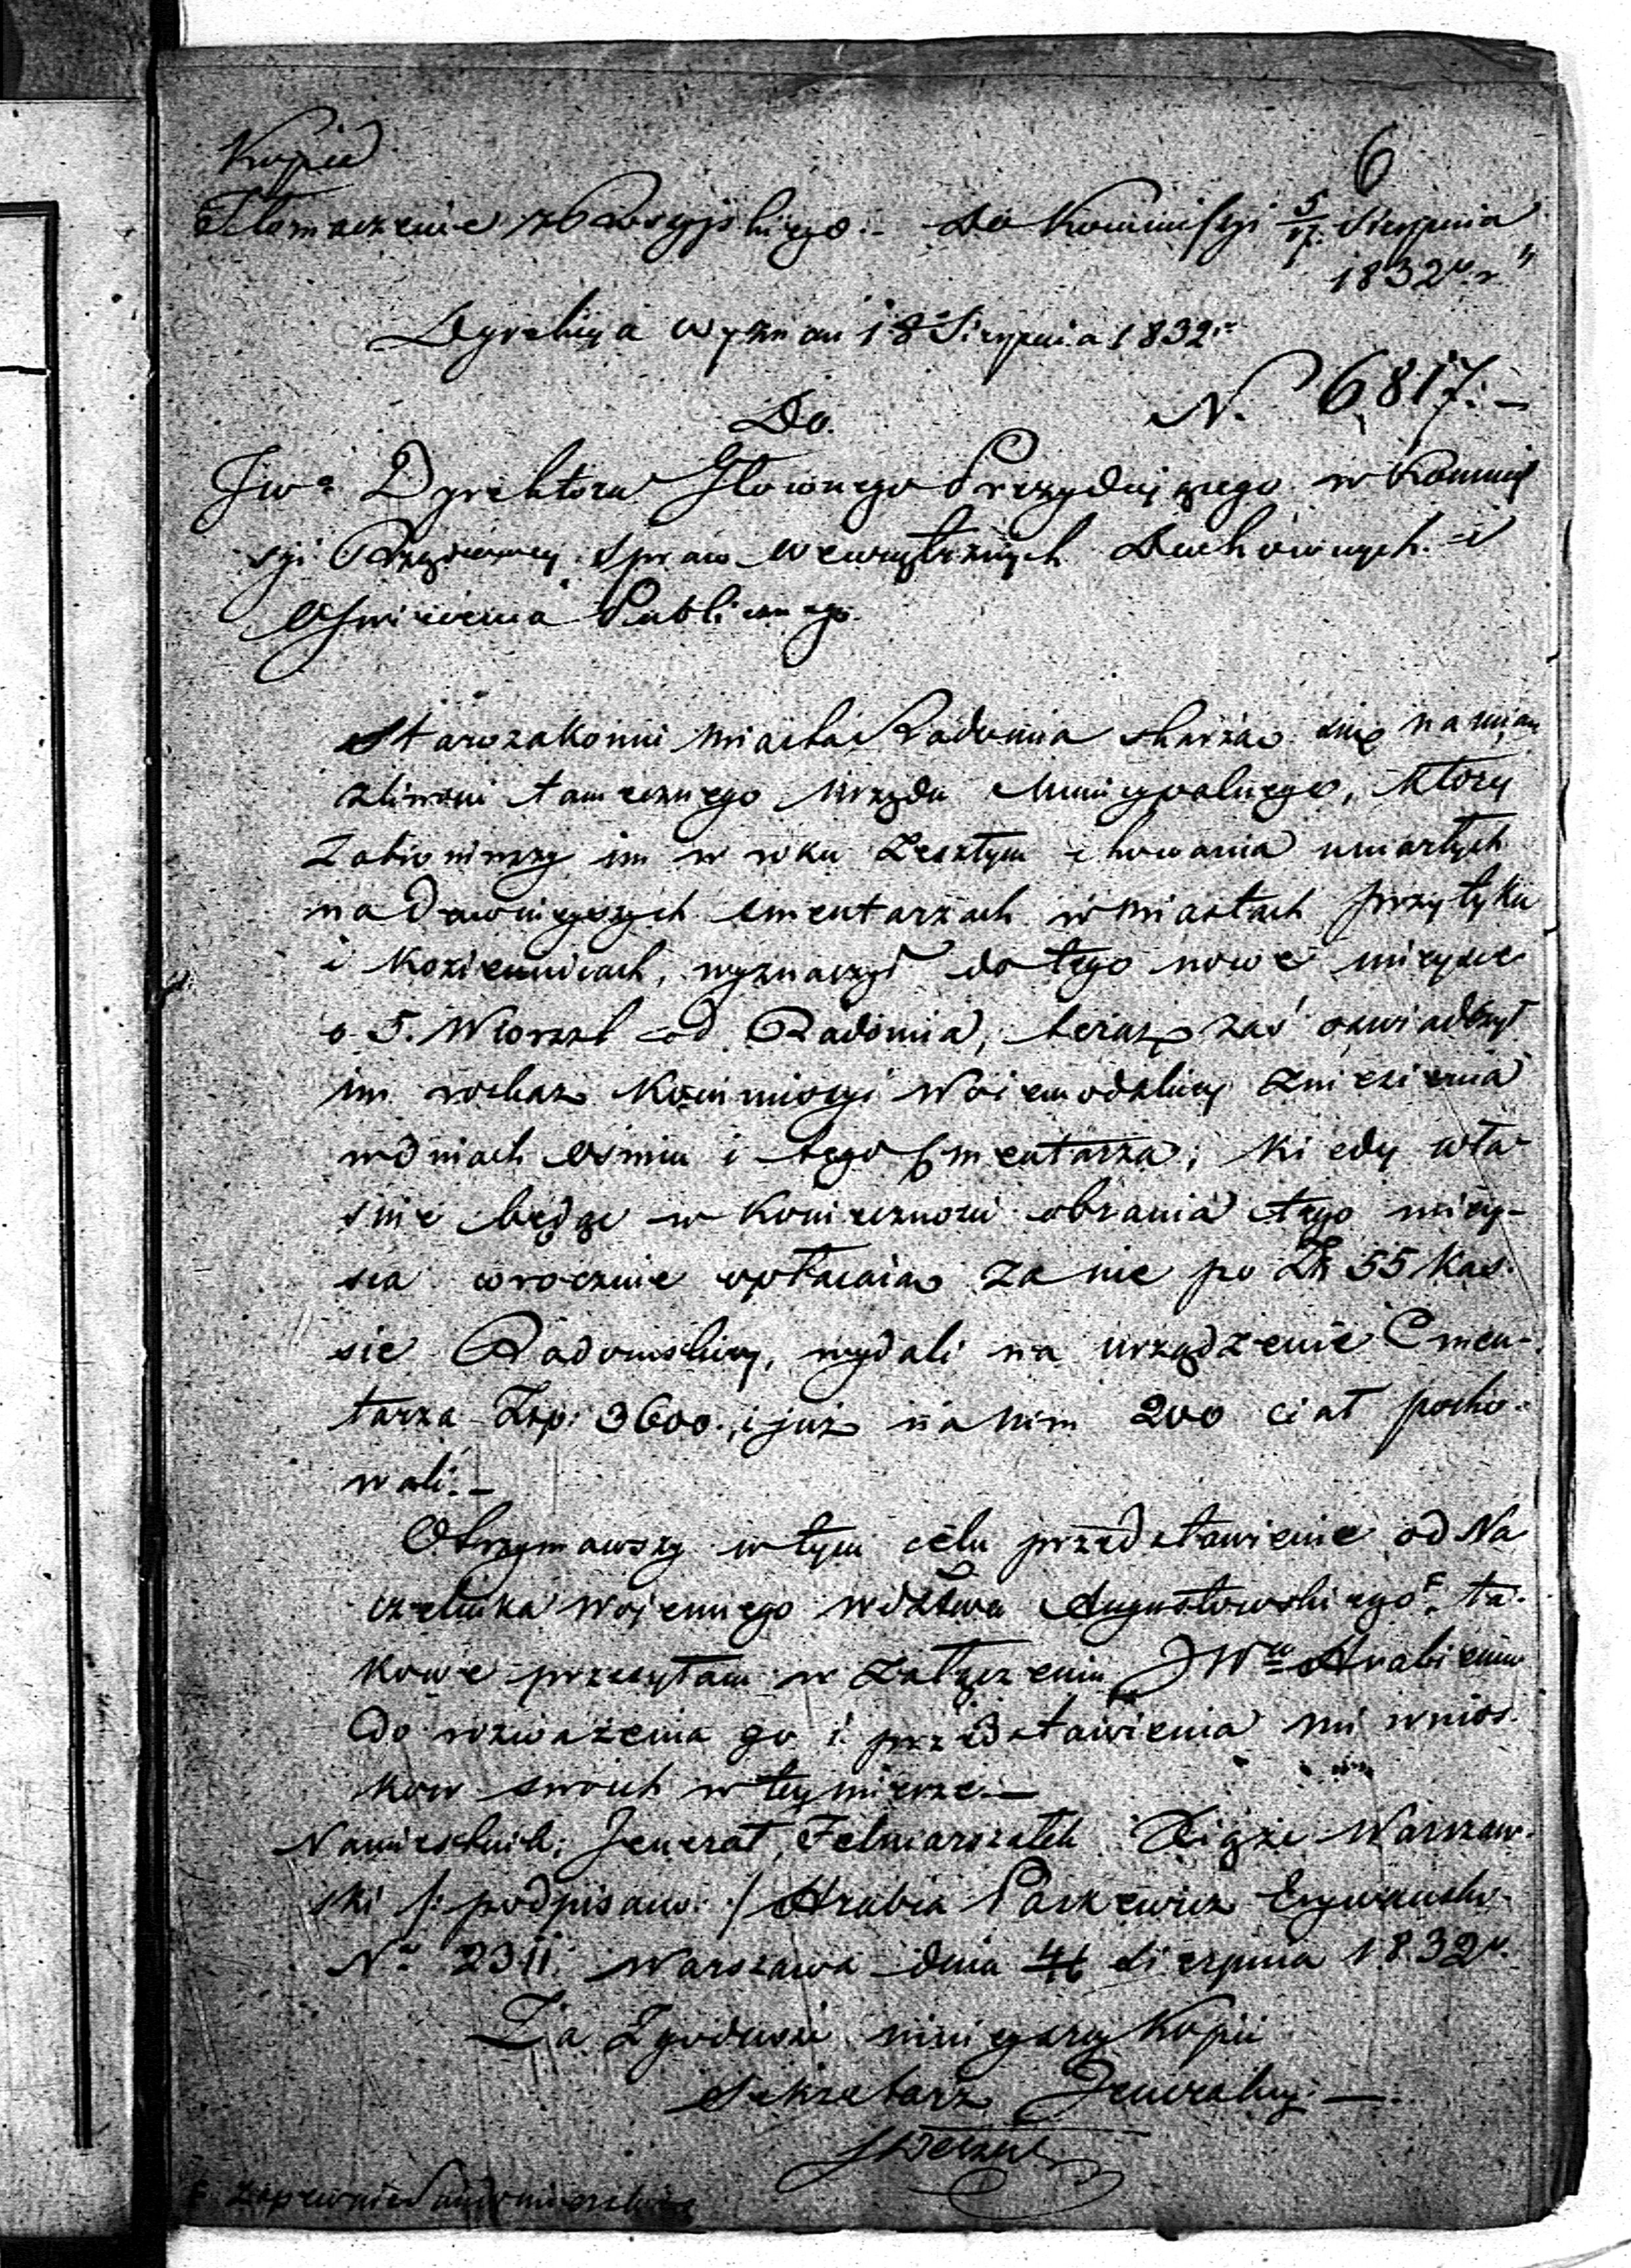 Kopia
6
Tłomaczenie z Rossyjskiego :- do Kommissyi 5/17 Sierpnia
1832 r.
Dyrekcya wyznań 18 Sierpnia 1832 r
Do
N. 6817.-
JWo Dyrektora Głównego Prezydującego w Kommis
syi Rządowey Spraw Wewnętrznych Duchownych i
Oświecenia Publicznego.
Starozakonni miasta Radomia skarżą się na uciąż
liwości tamecznego Urzędu Municypalnego, który
zabroniwszy im w roku zeszłym chowania umarłych
na dawnieyszych cmentarzach w miastach Przytyku
i Kozienicach, wyznaczył do tego nowe mieysce
o 5. Wiorst od Radomia, teraz zaś oświadczył
im rozkaz Kommissyi Woiewodzkiey zniesienia
w dniach ośmiu i tego Cmentarza; kiedy wła
śnie będąc w konieczności obrania tego miey-
sca corocznie opłacaiąc za nie po Zł 55 Kas-
sie Radomskiey, wydali na urządzenie Cmen-
tarza Złp: 3600., i już na nim 200 ciał pocho-
wali.-
Otrzymawszy w tym celu przedstawienie od Na
czelnika Wojennego Wdztwa Augustowskiego F. ta-
kowe przesyłam w załączeniu JWu Hrabiemu
do rozważenia go i przedstawienia mi wnios-
kow swoich w tey mierze.-
Namiestnik, Jenerał Felmarszałek Xiąże Warszaw-
ski /: podpisano :/ Hrabia Paskewicz Erywański
No 2311. Warszawa dnia 4/16 Sierpnia 1832 r.
Za Zgodność ninieyszey Kopii
Sekretarz Jeneralny.-
F. zapewne Sandomierskiego